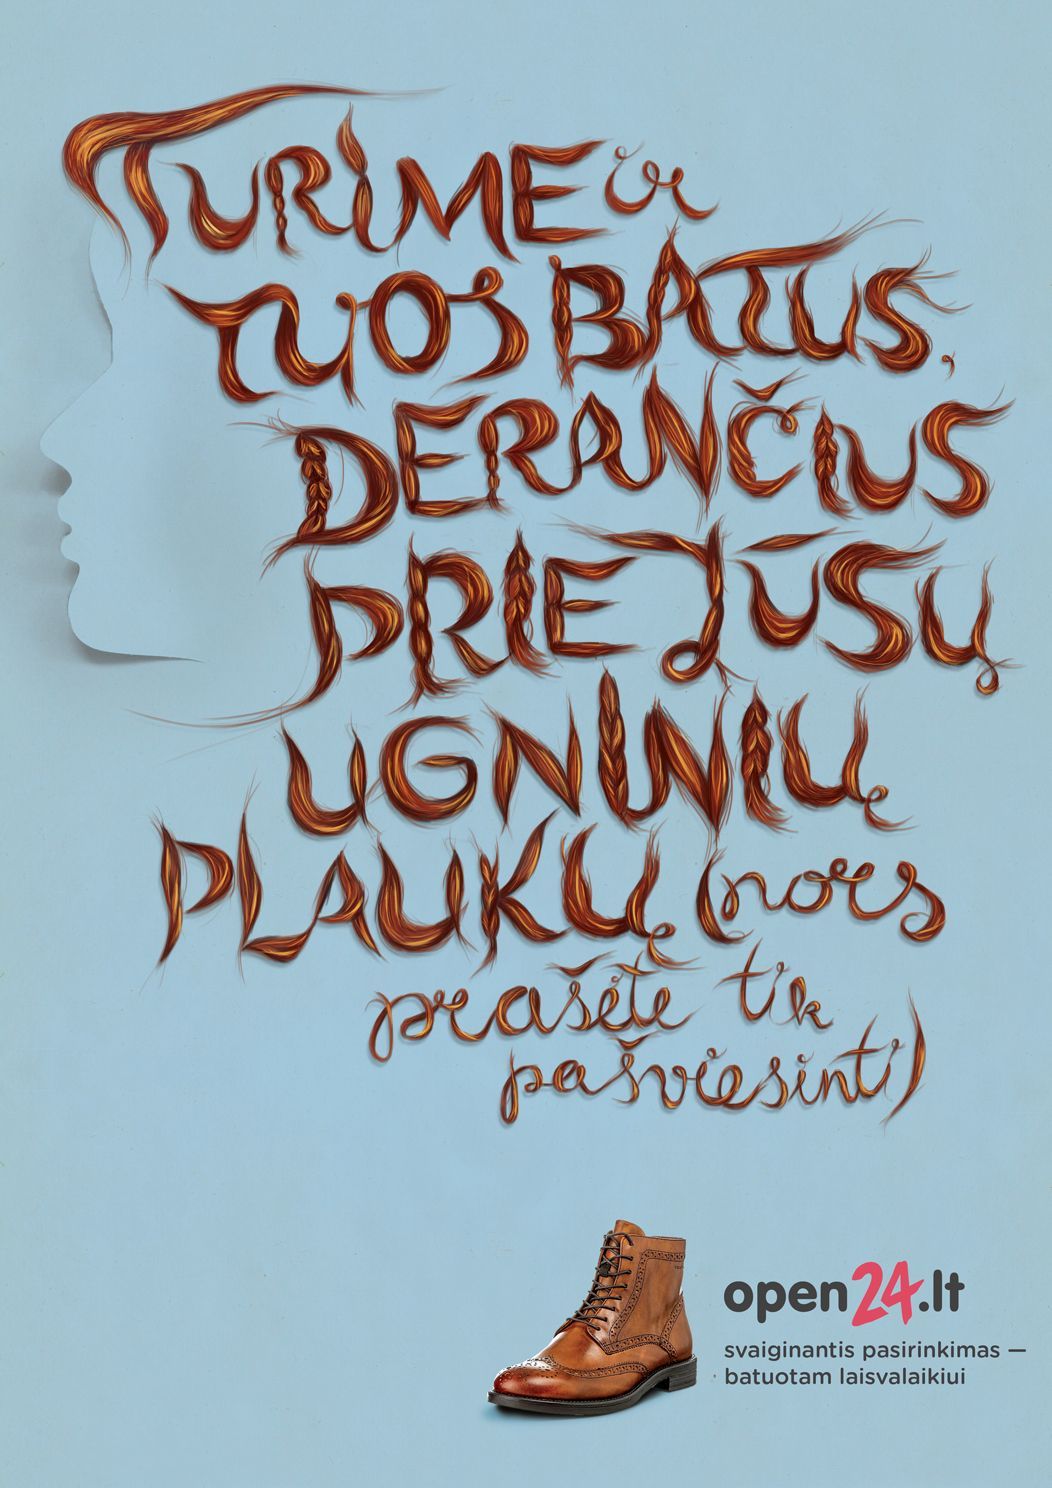 TURIME ir
TUOS BATUS,
DERANČIUS
PRIE JŪSŲ
UGNINIŲ
PLAUKŲ (nors
prašėte tik
pašviesinti)
open24.lt
svaiginantis pasirinkimas —
batuotam laisvalaikiui